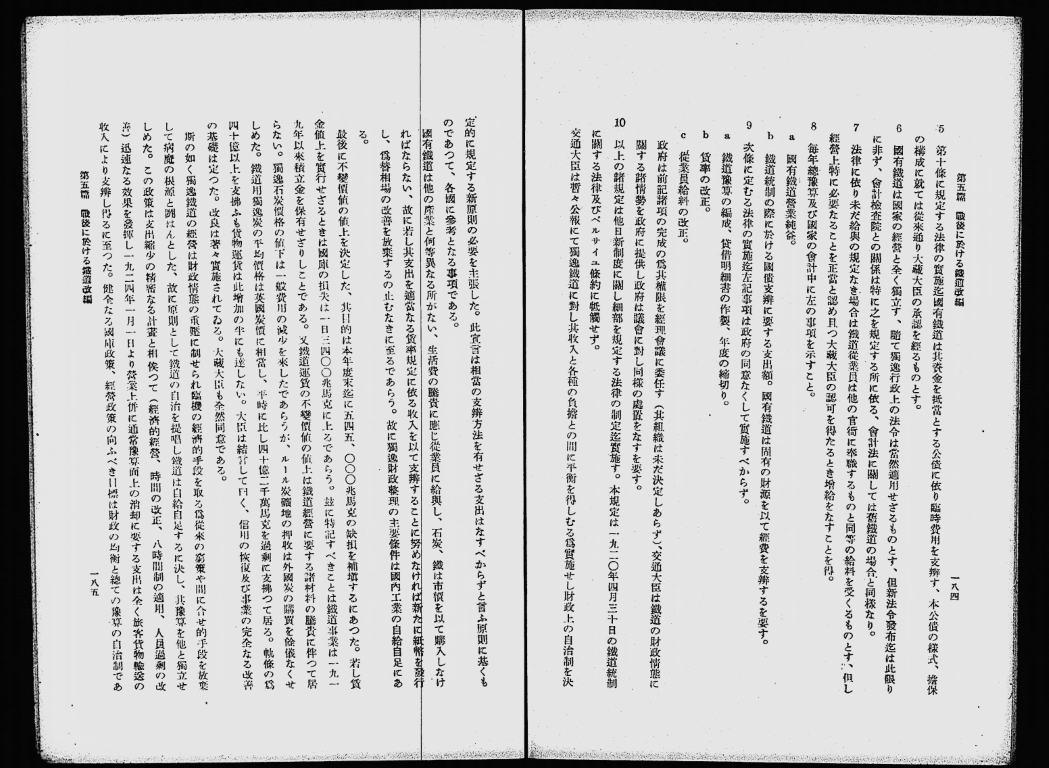 第五篇 戰後に於ける鐵道改編
一八四
5 第十條に規定する法律の實施迄國有鐵道は其資金を抵當とする公債に依り臨時費用を支辨す、本公債の樣式、擔保
の構成に就ては從來通り大藏大臣の承認を經るものとす。
6 國有鐵道は國家の經營と全く獨立す、隨て獨逸行政上の法令は當然適用せざるものとす、但新法令發布迄は此限り
に非ず、會計檢査院との關係は特に之を規定する所に依る、會計法に關しては舊鐵道の場合と同樣なり。
7 法律に依り未だ給與の規定なき場合は鐵道從業員は他の官衙に奉職するものと同等の給料を受くるものとす、但し
經營上特に必要なることを正當と認め且つ大藏大臣の認可を得たるとき增給をなすことを得。
8 每年總豫算及び國家の會計中に左の事項を示すこと。
a 國有鐵道營業純益。
b 鐵道統制の際に於ける國債支辨に要する支出額。國有鐵道は固有の財源を以て經費を支辨するを要す。
9 次條に定むる法律の實施迄左記事項は政府の同意なくして實施すべからず。
a 鐵道豫算の編成、貸借明細書の作製、年度の締切り。
b 賃率の改正。
c 從業員給料の改正。
政府は前記諸項の完成の爲其權限を經理會議に委任す（其組織は未だ決定しあらず）、交通大臣は鐵道の財政情態に
關する諸情勢を政府に提供し政府は議會に對し同樣の處置をなすを要す。
10 以上の諸規定は他日新制度に關し細部を規定する法律の制定迄實施す。本規定は一九二〇年四月三十日の鐵道統制
に關する法律及びベルサイユ條約に牴觸せず。
交通大臣は暫々公報にて獨逸鐵道に對し其收入と各種の負擔との間に平衡を得しむる爲實施せし財政上の自治制を決
定的に規定する新原則の必要を主張した。此宣言は相當の支辨方法を有せざる支出はなすべからずと言ふ原則に基くも
のであつて、各國に參考となる事項である。
國有鐵道は他の產業と何等異なる所がない、生活費の騰貴に應じ從業員に給與し、石炭、鐵は市價を以て購入しなけ
ればならない、故に若し其支出を適當なる賃率規定に依る收入を以て支辨することに努めなければ新たに紙幣を發行
し、爲替相場の改善を放棄するの止むなきに至るであらう。故に獨逸財政整理の主要條件は國內工業の自給自足にあ
る。
最後に不變價値の値上を決定した、其目的は本年度末迄に五四五、〇〇〇兆馬克の缺損を補塡するにあつた。若し賃
金値上を實行せざるときは國庫の損失は一日三四〇〇兆馬克に上るであらう。玆に特記すべきことは鐵道事業は一九一
九年以來積立金を保有せざりしことである。又鐵道運賃の不變價値の値上は鐵道經營に要する諸材料の騰貴に伴つて居
らない。獨逸石炭價格の値下は一般費用の減少を來したであらうが、ルール炭礦地の押收は外國炭の購買を餘儀なくせ
しめた。鐵道用獨逸炭の平均價格は英國炭價に相當し、平時に比し四十億二千萬馬克を過剩に支拂つて居る。軌條の爲
四十億以上を支拂ふも貨物運賃は此增加の半にも達しない。大臣は結言して曰く、信用の恢復及び事業の完全なる改善
の基礎は定つた。改良は著々實施されてゐる。大藏大臣も全然同意である。
斯の如く獨逸鐵道の經營は財政情態の重壓に制せられ臨機の經濟的手段を取る爲從來の窮策や間に合せ的手段を放棄
して病魔の根源と鬪はんとした、故に原則として鐵道の自治を提唱し鐵道は自給自足するに決し、其豫算を他と獨立せ
しめた。この政策は支出縮少の精密なる計畫と相俟つて（經濟的經營、時間の改正、八時間制の適用、人員過剩の改
善）迅速なる效果を發揮し一九二四年一月一日より營業上併に通常豫算面上の消却に要する支出は全く旅客貨物輸送の
收入により支辨し得るに至つた。健全なる國庫政策、經營政策の向ふべき目標は財政の均衡と總ての豫算の自治制であ
第五篇 戰後に於ける鐵道改編
一八五